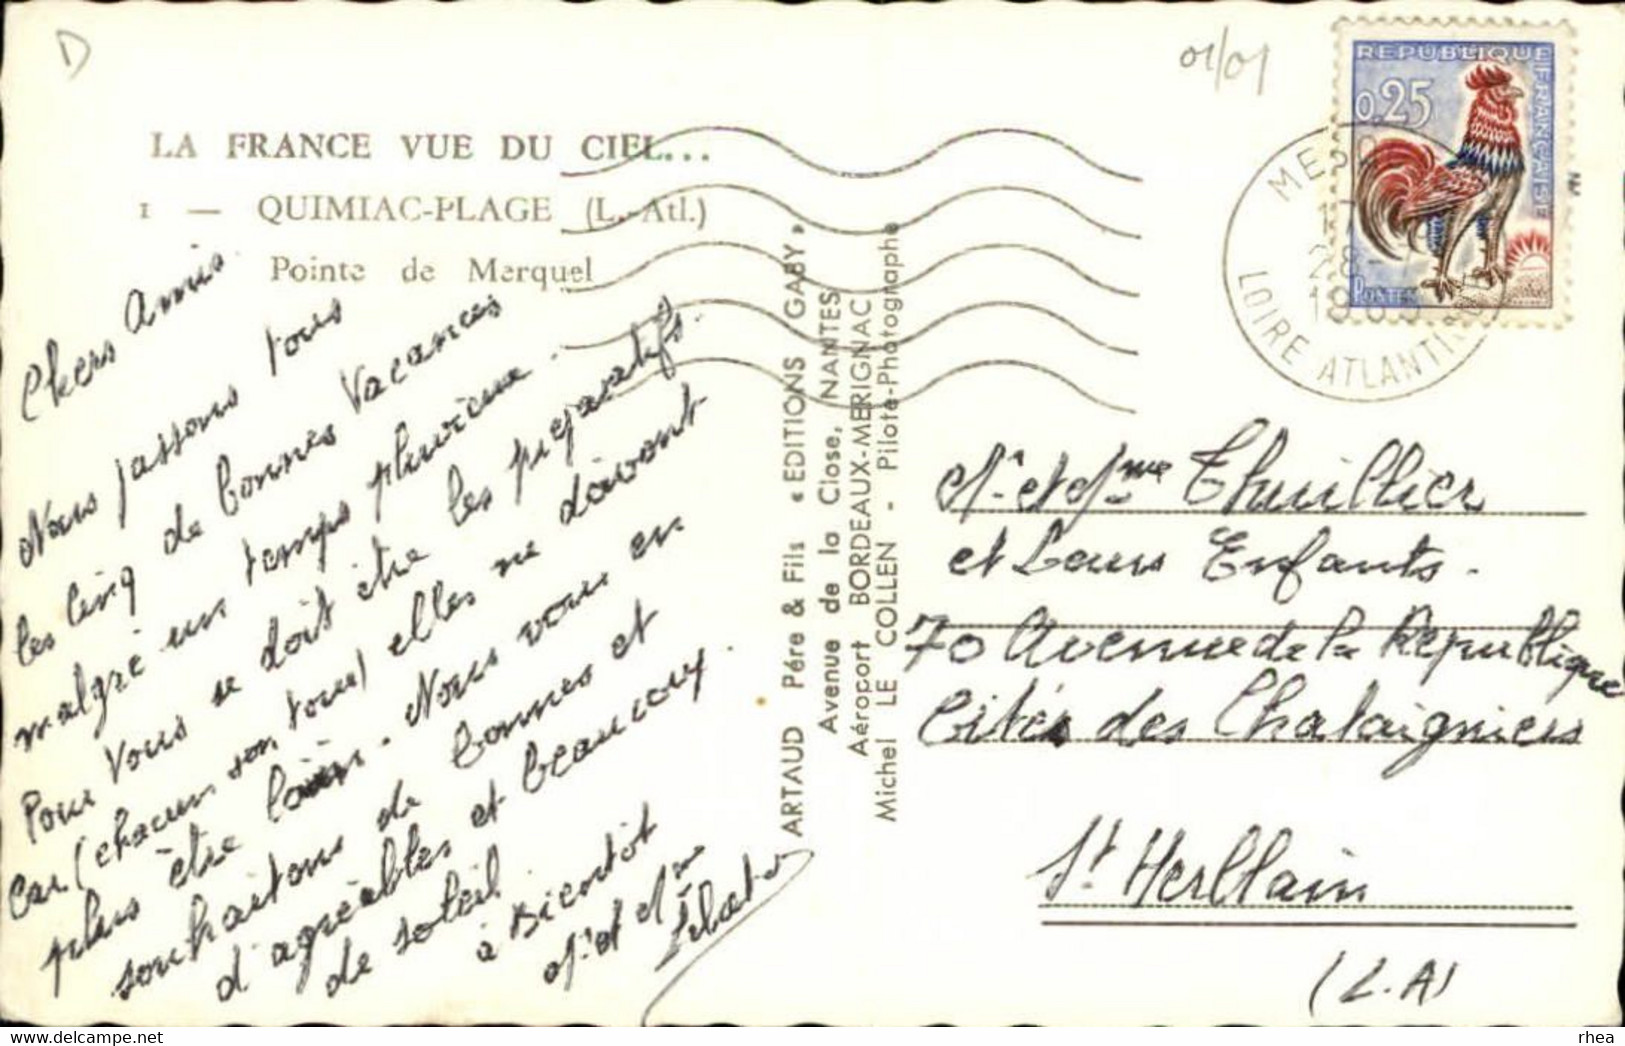 D
01/01
LA FRANCE VUE DU CIEL...
1 — QUIMIAC-PLAGE (L.-Atl.)
Pointe de Merquel
Chers Amis
Nous passons tous
les cinq de bonnes Vacances
malgré un temps pluvieux.
Pour Vous se doit être les préparatifs.
car (chacun son tour) elles ne doivent
plus être loin. Nous vous en
souhaitons de bonnes et
d'agréables et beaucoup.
de soleil.
à Bientôt
Mr et Mme
ARTAUD Père & Fils « EDITIONS GABY »
Avenue de la Close, NANTES
Aéroport BORDEAUX-MERIGNAC
Michel LE COLLEN - Pilote-Photographe
REPUBLIQUE FRANÇAISE
0.25
POSTES
LOIRE ATLANTIQUE
Mr et Mme Thuillier
et Leurs Enfants.
70 Avenue de la Republique
Cités des Chataigniers
St Herblain
(L.A)
delcampe.net
rhea